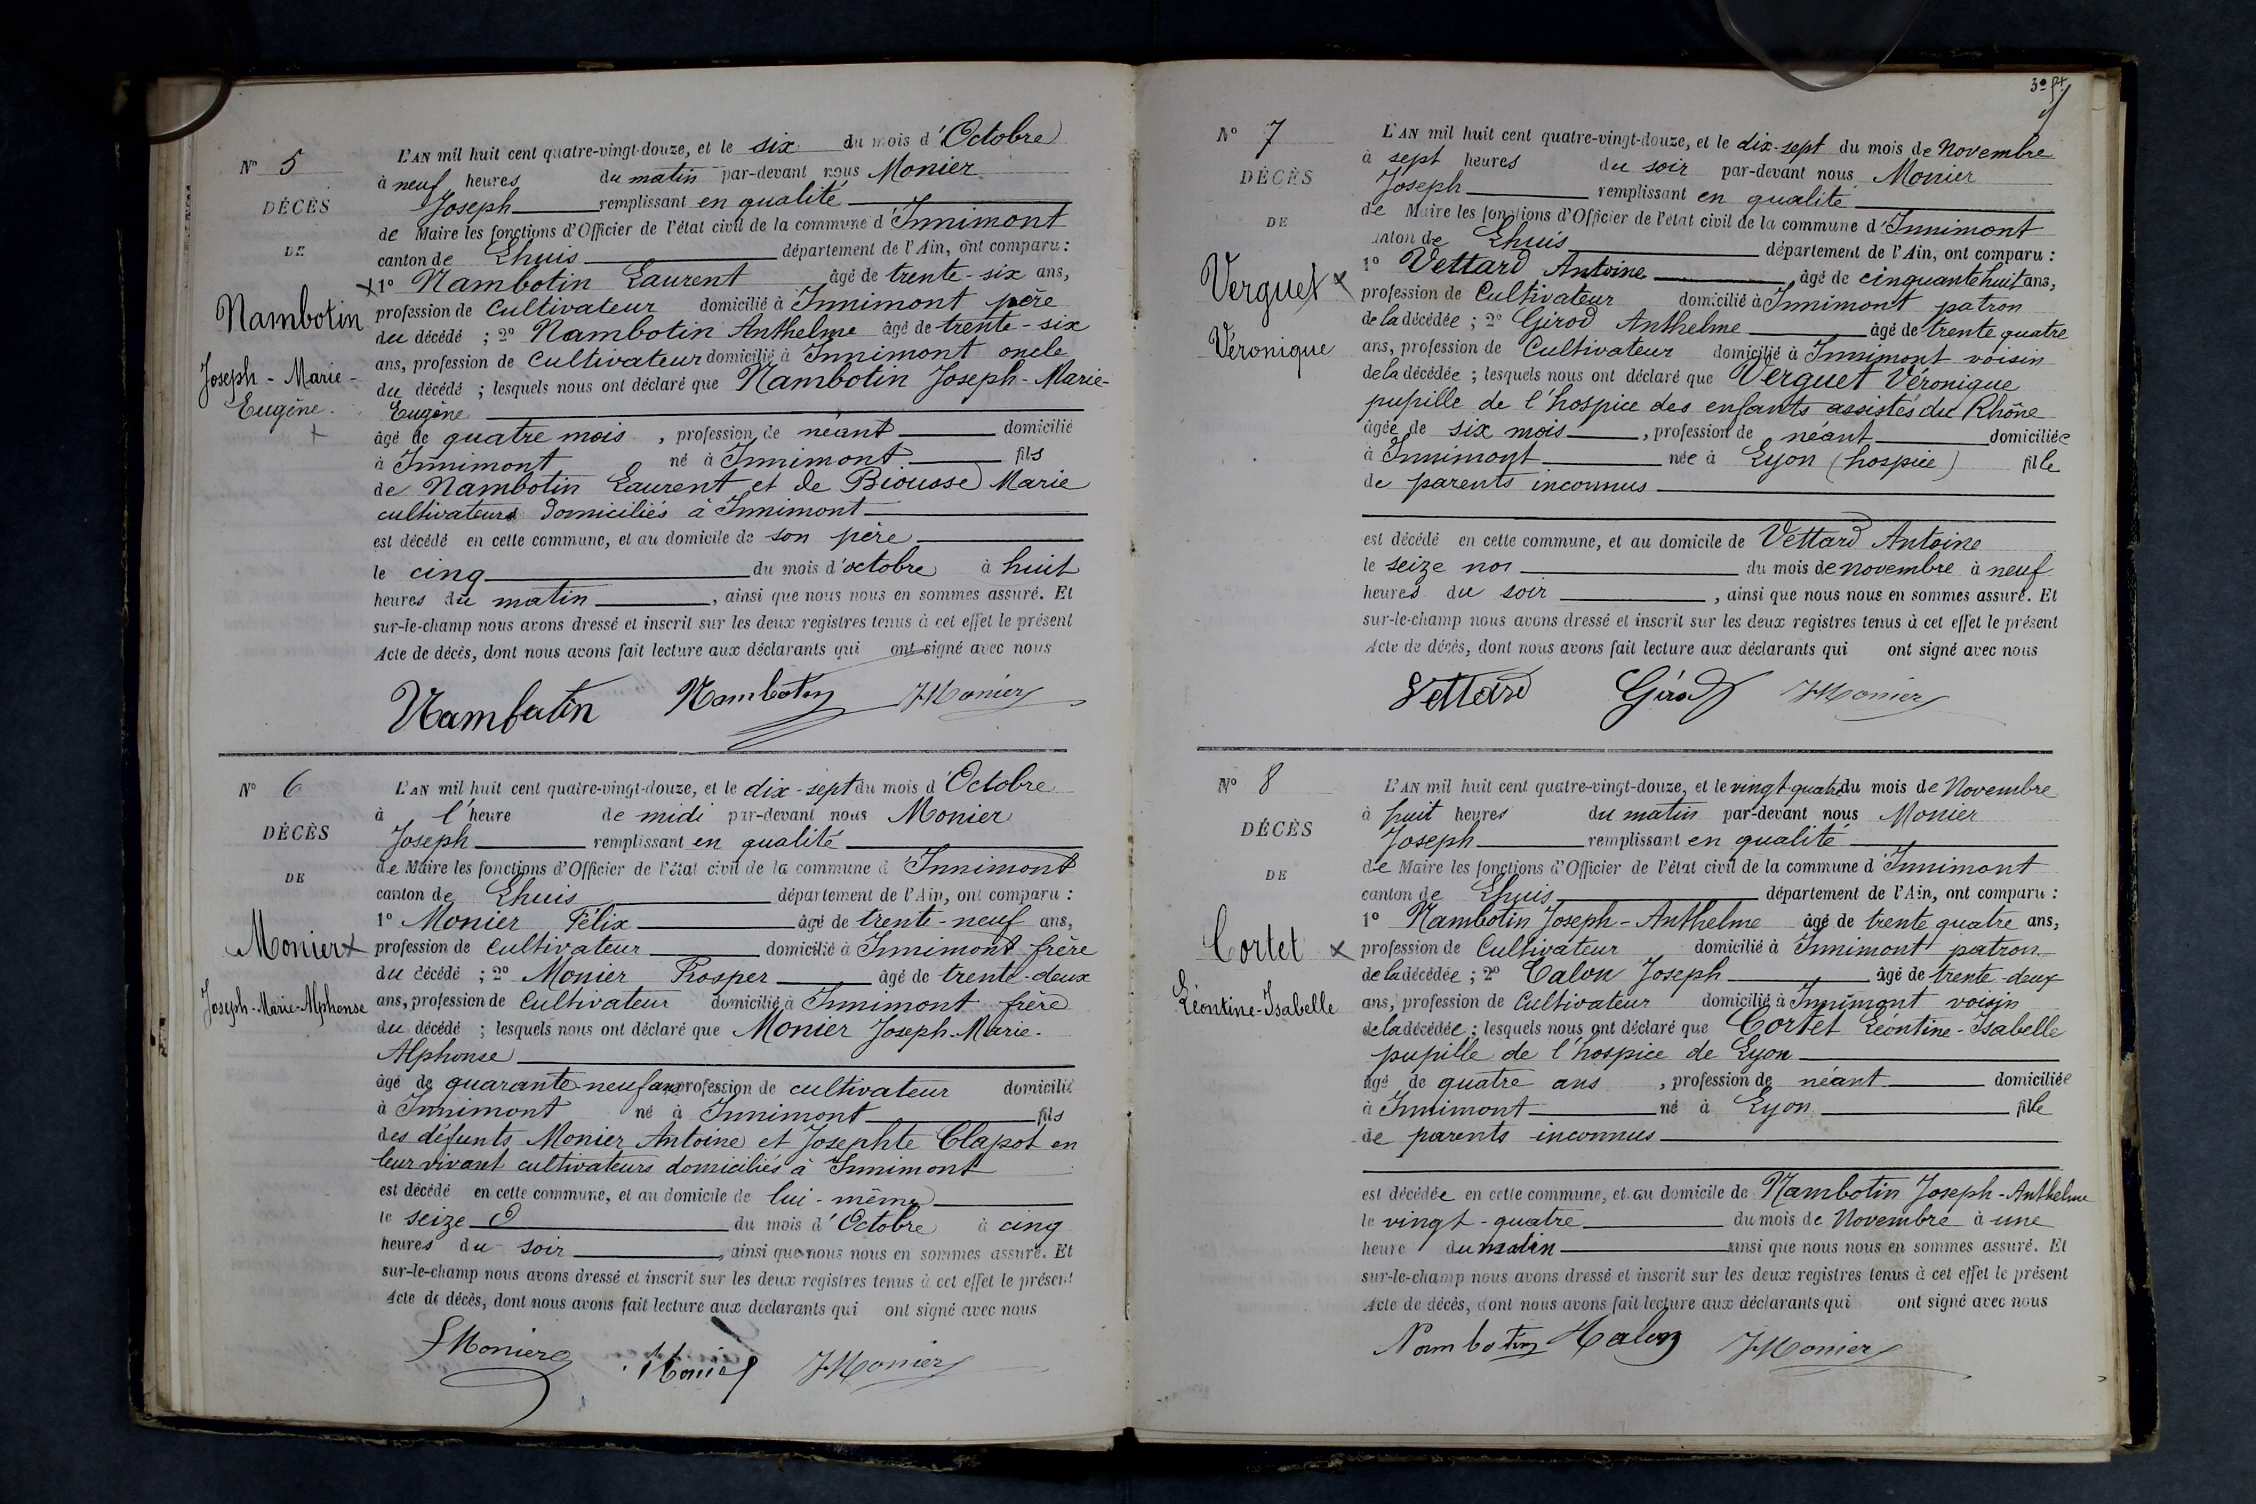 N° 5
DÉCÈS
DE
Nambotin
Joseph - Marie -
Eugène.
L'AN mil huit cent quatre-vingt-douze, et le six du mois d'Octobre
à neuf heures du matin par-devant nous Monier
Joseph remplissant en qualité
de Maire les fonctions d'Officier de l'état civil de la commune d'Innimont
canton de Lhuis département de l'Ain, ont comparu :
1° Nambotin Laurent âgé de trente-six ans,
profession de Cultivateur domicilié à Innimont père
du décédé ; 2° Nambotin Anthelme âgé de trente-six
ans, profession de Cultivateur domicilié à Innimont oncle
du décédé ; lesquels nous ont déclaré que Nambotin Joseph-Marie-
Eugène
âgé de quatre mois, profession de néant domicilié
à Innimont né à Innimont fils
de Nambotin Laurent et de Biousse Marie
cultivateurs domiciliés à Innimont
est décédé en cette commune, et au domicile de son père
le cinq du mois d'octobre à huit
heures du matin, ainsi que nous nous en sommes assuré. Et
sur-le-champ nous avons dressé et inscrit sur les deux registres tenus à cet effet le présent
Acte de décès, dont nous avons fait lecture aux déclarants qui ont signé avec nous
Nambotin Nambotin JMonier
N° 6
DÉCÈS
DE
Monier
Joseph-Marie-Alphonse
L'AN mil huit cent quatre-vingt-douze, et le dix-sept du mois d'Octobre
à l'heure de midi par-devant nous Monier
Joseph remplissant en qualité
de Maire les fonctions d'Officier de l'état civil de la commune d'Innimont
canton de Lhuis département de l'Ain, ont comparu :
1° Monier Félix âgé de trente-neuf ans,
profession de cultivateur domicilié à Innimont frère
du décédé ; 2° Monier Prosper âgé de trente-deux
ans, profession de Cultivateur domicilié à Innimont frère
du décédé ; lesquels nous ont déclaré que Monier Joseph-Marie-
Alphonse
âgé de quarante-neuf ans, profession de cultivateur domicilié
à Innimont né à Innimont fils
des défunts Monier Antoine et Josephte Clapot en
leur vivant cultivateurs domiciliés à Innimont
est décédé en cette commune, et au domicile de lui-même
le seize O du mois d'Octobre à cinq
heures du soir, ainsi que nous nous en sommes assuré. Et
sur-le-champ nous avons dressé et inscrit sur les deux registres tenus à cet effet le présent
Acte de décès, dont nous avons fait lecture aux déclarants qui ont signé avec nous
FMonier Monier JMonier
N° 7
DÉCÈS
DE
Verguet
Véronique
L'AN mil huit cent quatre-vingt-douze, et le dix-sept du mois de Novembre
à sept heures du soir par-devant nous Monier
Joseph remplissant en qualité
de Maire les fonctions d'Officier de l'état civil de la commune d'Innimont
canton de Lhuis département de l'Ain, ont comparu :
1° Vettard Antoine âgé de cinquante huit ans,
profession de Cultivateur domicilié à Innimont patron
de la décédée ; 2° Girod Anthelme âgé de trente quatre
ans, profession de Cultivateur domicilié à Innimont voisin
de la décédée ; lesquels nous ont déclaré que Verguet Véronique
pupille de l'hospice des enfants assistés du Rhône
âgée de six mois, profession de néant domiciliée
à Innimont née à Lyon (hospice) fille
de parents inconnus
est décédé en cette commune, et au domicile de Vettard Antoine
le seize nov du mois de novembre à neuf
heures du soir, ainsi que nous nous en sommes assuré. Et
sur-le-champ nous avons dressé et inscrit sur les deux registres tenus à cet effet le présent
Acte de décès, dont nous avons fait lecture aux déclarants qui ont signé avec nous
Vettard Girod JMonier
N° 8
DÉCÈS
DE
Cortet
Léontine-Isabelle
L'AN mil huit cent quatre-vingt-douze, et le vingt quatre du mois de Novembre
à huit heures du matin par-devant nous Monier
Joseph remplissant en qualité
de Maire les fonctions d'Officier de l'état civil de la commune d'Innimont
canton de Lhuis département de l'Ain, ont comparu :
1° Nambotin Joseph-Anthelme âgé de trente quatre ans,
profession de Cultivateur domicilié à Innimont patron
de la décédée ; 2° Calon Joseph âgé de trente-deux
ans, profession de Cultivateur domicilié à Innimont voisin
de la décédée ; lesquels nous ont déclaré que Cortet Léontine-Isabelle
pupille de l'hospice de Lyon
âgé de quatre ans, profession de néant domiciliée
à Innimont né à Lyon fille
de parents inconnus
est décédée en cette commune, et au domicile de Nambotin Joseph-Anthelme
le vingt-quatre du mois de Novembre à une
heure du matin ainsi que nous nous en sommes assuré. Et
sur-le-champ nous avons dressé et inscrit sur les deux registres tenus à cet effet le présent
Acte de décès, dont nous avons fait lecture aux déclarants qui ont signé avec nous
Nambotin Calon JMonier